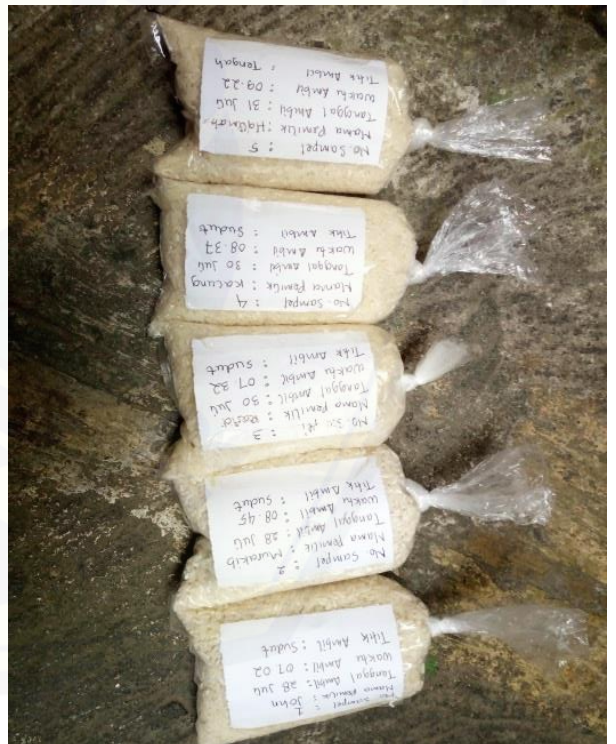 No. Sampel : 1
Nama Pemilik : John
Tanggal Ambil : 28 Juli
Waktu Ambil : 07.02
Titik Ambil : Sudut
No. Sampel : 2
Nama Pemilik : Murakib
Tanggal Ambil : 28 Juli
Waktu Ambil : 08.45
Titik Ambil : Sudut
No. : 3
Nama Pemilik :
Tanggal Ambil : 30 Juli
Waktu Ambil : 07.32
Titik Ambil : Sudut
No. Sampel : 4
Nama Pemilik : Kacung
Tanggal Ambil : 30 Juli
Waktu Ambil : 08.37
Titik Ambil : Sudut
No. Sampel : 5
Nama Pemilik : Halimah
Tanggal Ambil : 31 Juli
Waktu Ambil : 09.22
Titik Ambil : Tengah